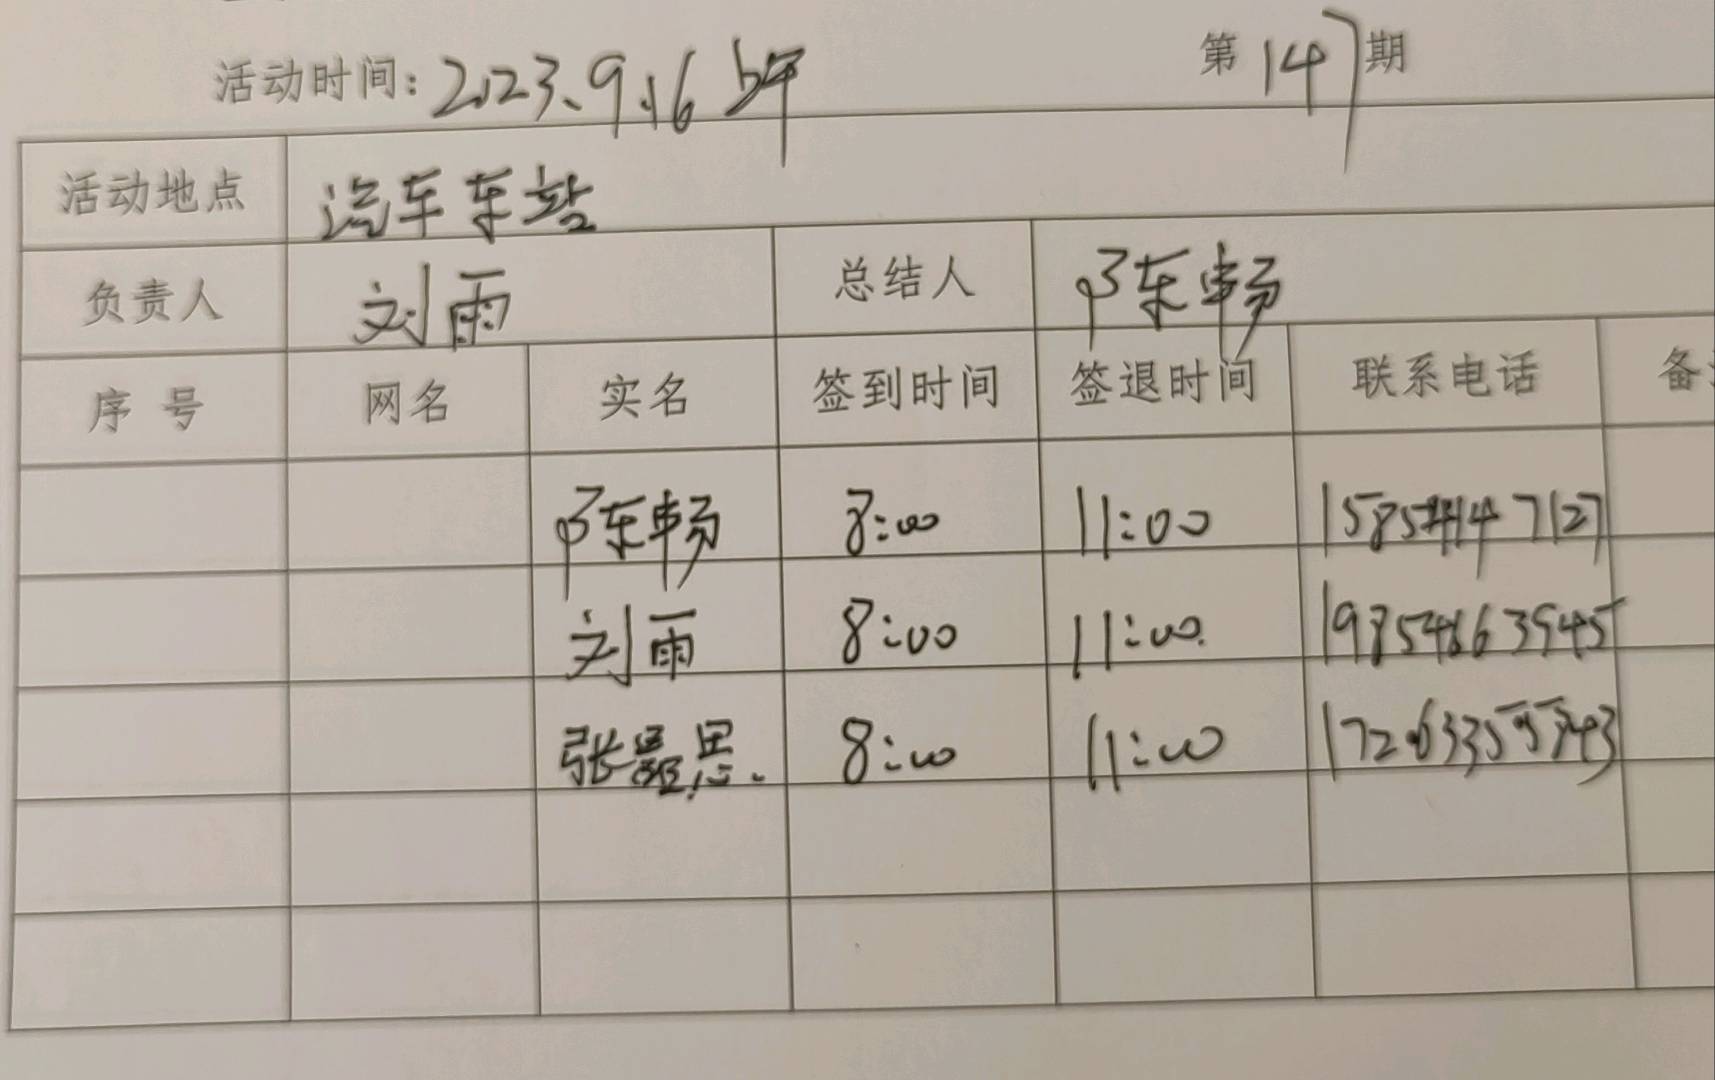 活动时间: 2023.9.16 上午 第147期
活动地点 汽车车站
负责人 刘雨 总结人 陈畅
序号 网名 实名 签到时间 签退时间 联系电话 备
陈畅 8:00 11:00
刘雨 8:00 11:00 19854663945
张 思 8:00 11:00